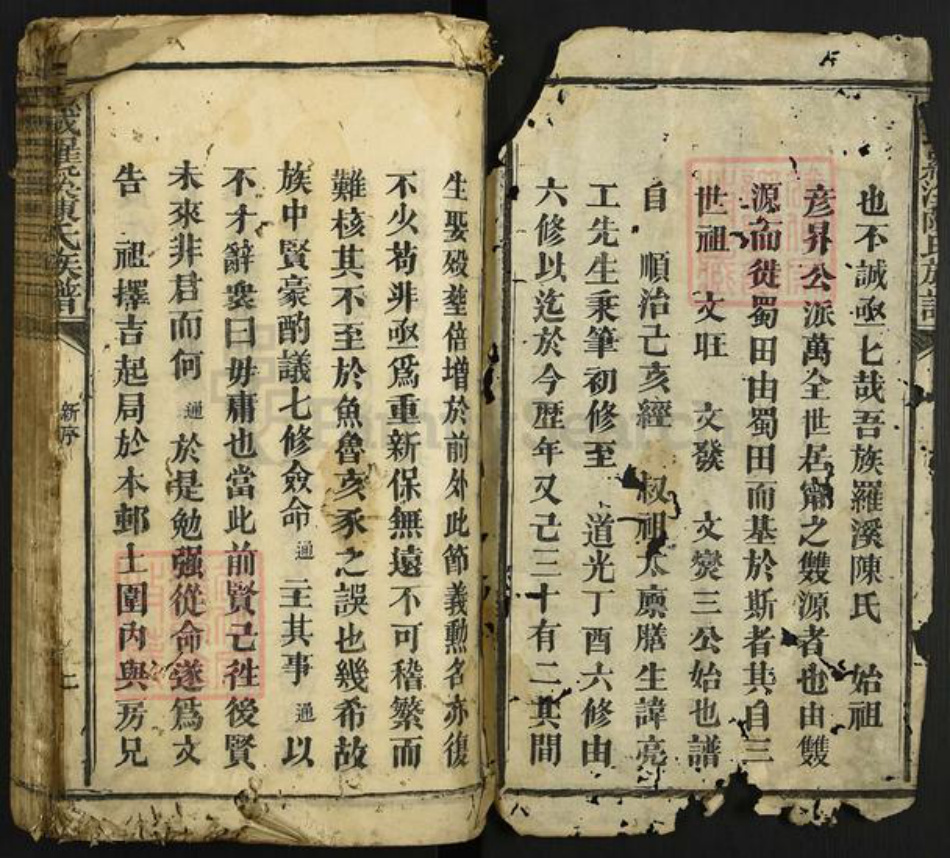 也不誠亟亟哉吾族羅溪陳氏　始祖
彥昇公派萬全世居甯之雙源者也由雙
源而徙蜀田由蜀田而基於斯者其自三
世祖　文旺　文發　文爕三公始也譜
自　順治己亥經　叔祖太廪膳生諱亮
工先生秉筆初修至　道光丁酉六修由
六修以迄於今歷年又已三十有二其間
生娶殁塟倍增於前外此節義勲名亦復
不少苟非亟爲重新保無遠不可稽繁而
難核其不至於魚魯亥豕之誤也幾希故
族中賢豪酌議七修僉命通主其事通以
不才辭衆曰毋庸也當此前賢已徃後賢
未來非君而何通於是勉强從命遂爲文
告　祖擇吉起局於本邨土圍內與房兄
陳氏族譜
新序
二
陳氏族譜
FamilySearch